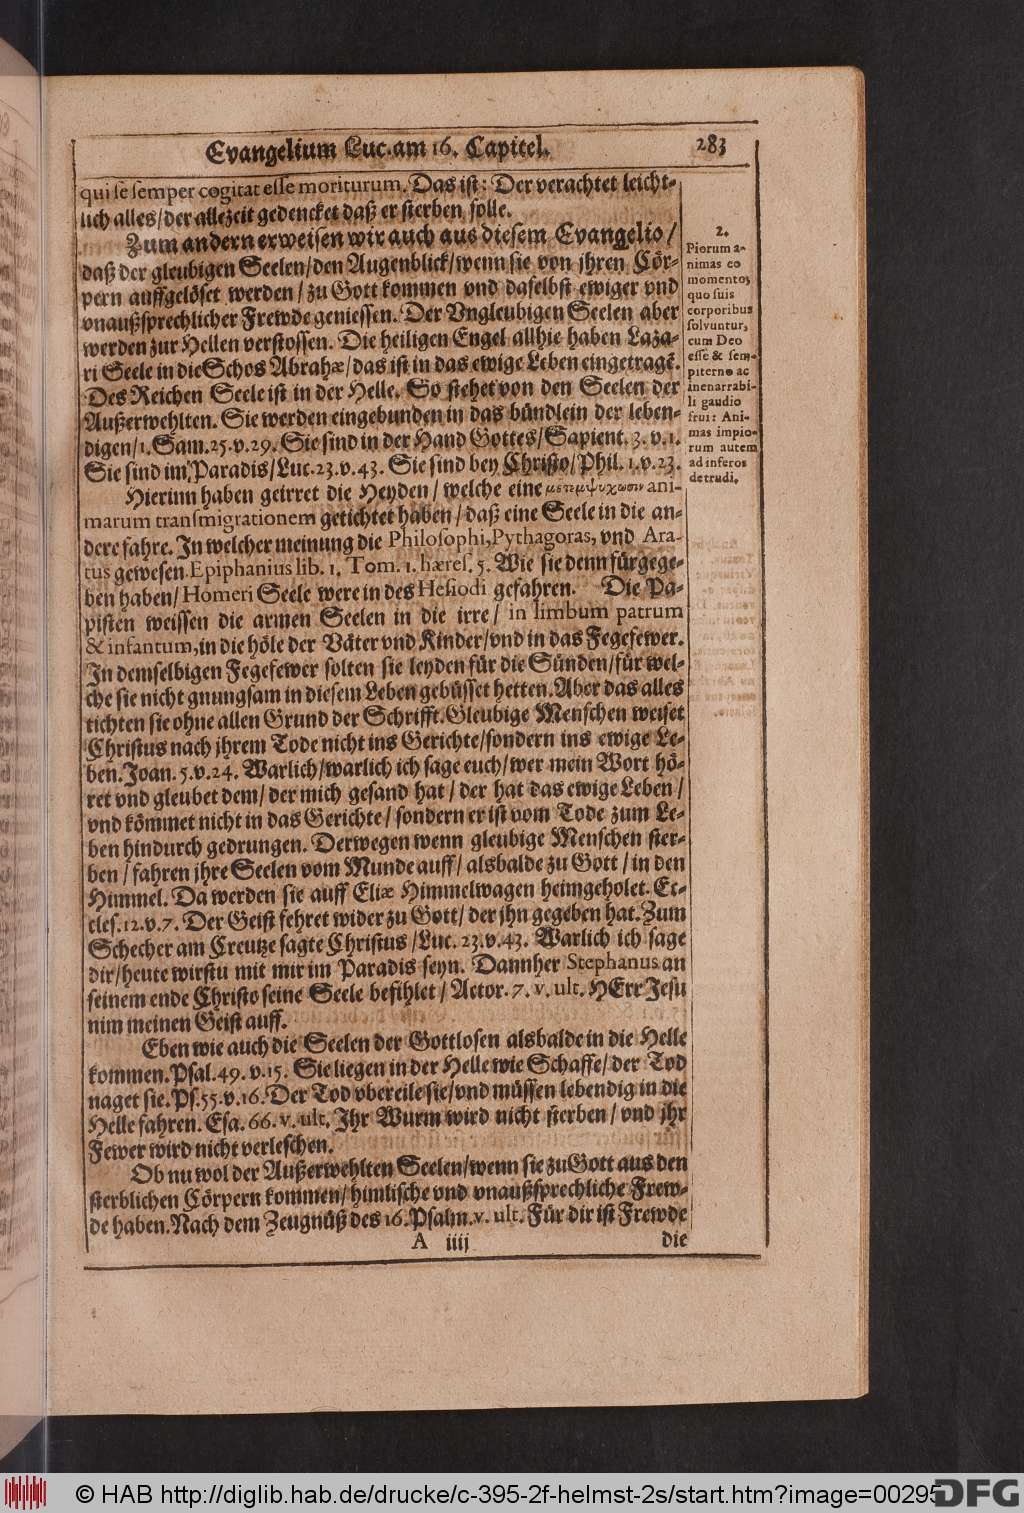 Evangelium Luc. am 16. Capitel. 283
qui se semper cogitat esse moriturum. Das ist: Der verachtet leicht-
lich alles/ der allezeit gedencket daß er sterben solle.
Zum andern erweisen wir auch aus diesem Evangelio/
daß der gleubigen Seelen/ den Augenblick/ wenn sie von jhren Cör-
pern auffgelöset werden/ zu Gott kommen vnd daselbst ewiger vnd
vnaußsprechlicher Frewde geniessen. Der Vngleubigen Seelen aber
werden zur Hellen verstossen. Die heiligen Engel allhie haben Laza-
ri Seele in die Schos Abrahæ/ das ist in das ewige Leben eingetragē.
Des Reichen Seele ist in der Helle. So stehet von den Seelen der
Außerwehlten. Sie werden eingebunden in das bündlein der leben-
digen/ 1. Sam. 25. v. 29. Sie sind in der Hand Gottes/ Sapient. 3. v. 1.
Sie sind im Paradis/ Luc. 23. v. 43. Sie sind bey Christo/ Phil. 1. v. 23.
Hierinn haben geirret die Heyden/ welche eine μετεμψυχωσιν ani-
marum transmigrationem getichtet haben/ daß eine Seele in die an-
dere fahre. In welcher meinung die Philosophi, Pythagoras, vnd Ara-
tus gewesen. Epiphanius lib. 1. Tom. 1. hæres. 5. Wie sie denn fürgege-
ben haben/ Homeri Seele were in des Hesiodi gefahren. Die Pa-
pisten weissen die armen Seelen in die irre/ in limbum patrum
& infantum, in die höle der Väter vnd Kinder/ vnd in das Fegefewer.
In demselbigen Fegefewer solten sie leyden für die Sünden/ für wel-
che sie nicht gnungsam in diesem Leben gebüsset hetten. Aber das alles
tichten sie ohne allen Grund der Schrifft. Gleubige Menschen weiset
Christus nach jhrem Tode nicht ins Gerichte/ sondern ins ewige Le-
ben. Joan. 5. v. 24. Warlich/ warlich ich sage euch/ wer mein Wort hö-
ret vnd gleubet dem/ der mich gesand hat/ der hat das ewige Leben/
vnd kömmet nicht in das Gerichte/ sondern er ist vom Tode zum Le-
ben hindurch gedrungen. Derwegen wenn gleubige Menschen ster-
ben/ fahren jhre Seelen vom Munde auff/ alsbalde zu Gott/ in den
Himmel. Da werden sie auff Eliæ Himmelwagen heimgeholet. Ec-
cles. 12. v. 7. Der Geist fehret wider zu Gott/ der jhn gegeben hat. Zum
Schecher am Creutze sagte Christus/ Luc. 23. v. 43. Warlich ich sage
dir/ heute wirstu mit mir im Paradis seyn. Dannher Stephanus an
seinem ende Christo seine Seele befihlet/ Actor. 7. v. ult. HErr Jesu
nim meinen Geist auff.
Eben wie auch die Seelen der Gottlosen alsbalde in die Helle
kommen. Psal. 49. v. 15. Sie liegen in der Helle wie Schaffe/ der Tod
naget sie. Ps. 55. v. 16. Der Tod vbereile sie/ vnd müssen lebendig in die
Helle fahren. Esa. 66. v. ult. Ihr Wurm wird nicht sterben/ vnd jhr
Fewer wird nicht verleschen.
Ob nu wol der Außerwehlten Seelen/ wenn sie zu Gott aus den
sterblichen Cörpern kommen/ himlische vnd vnaußsprechliche Frew-
de haben. Nach dem Zeugnüß des 16. Psalm. v. ult. Für dir ist Frewde
A iiij die
2.
Piorum a-
nimas eo
momento,
quo suis
corporibus
solvuntur,
cum Deo
esse & sem-
piterno ac
inenarrabi-
li gaudio
frui: Ani-
mas impio-
rum autem
ad inferos
detrudi.
© HAB http://diglib.hab.de/drucke/c-395-2f-helmst-2s/start.htm?image=00295
DFG